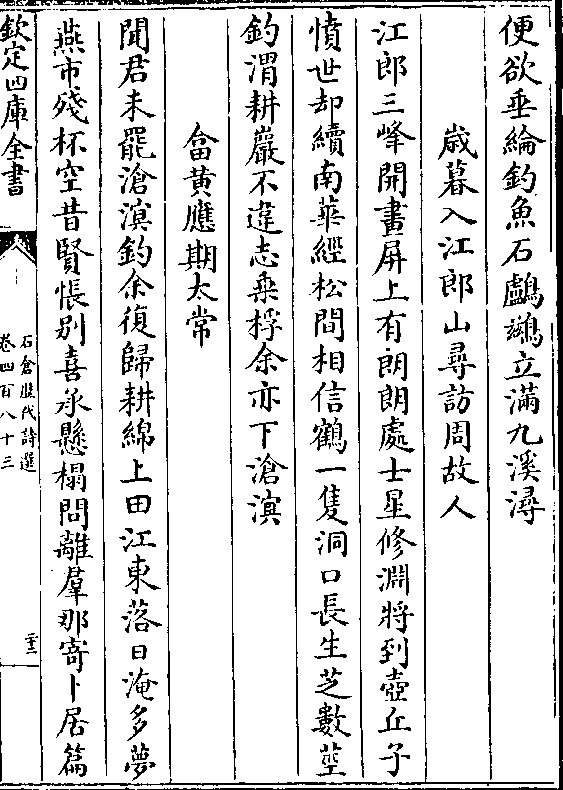 便欲垂綸釣魚石鸕鷀立滿九溪潯
歲暮入江郎山尋訪周故人
江郎三峰開畫屏上有朗朗處士星修淵將到壺丘子
憤世却續南華經松間相信鶴一隻洞口長生芝數莖
釣渭耕巖不違志乗桴余亦下滄溟
畣黄應期太常
聞君未罷滄溟釣余復歸耕綿上田江東落日淹多夢
燕市殘杯空昔賢悵别喜承懸榻問離羣那寄卜居篇
欽定四庫全書
石倉歷代詩選
卷四百八十三